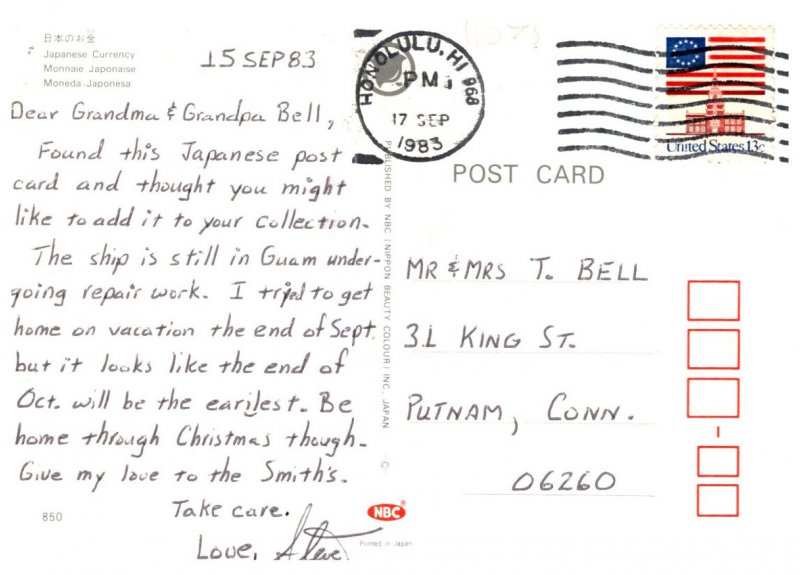 日本のお金
Japanese Currency
Monnaie Japonaise
Moneda Japonesa
15 SEP 83
Dear Grandma & Grandpa Bell,
Found this Japanese post
card and thought you might
like to add it to your collection.
The ship is still in Guam under-
going repair work. I tryed to get
home on vacation the end of Sept.
but it looks like the end of
Oct. will be the earilest. Be
home through Christmas though.
Give my love to the Smith's.
Take care.
Love, Steve
850
PUBLISHED BY NBC (NIPPON BEAUTY COLOUR) INC. JAPAN ©
NBC®
Printed in Japan
HONOLULU, HI 968
PM
17 SEP
1983
United States 13c
POST CARD
MR & MRS T. BELL
31 KING ST.
PUTNAM, CONN.
06260